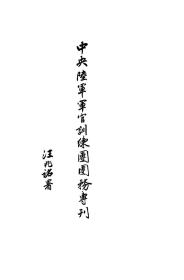 中央陸軍軍官訓練團團務專刊
汪兆銘署